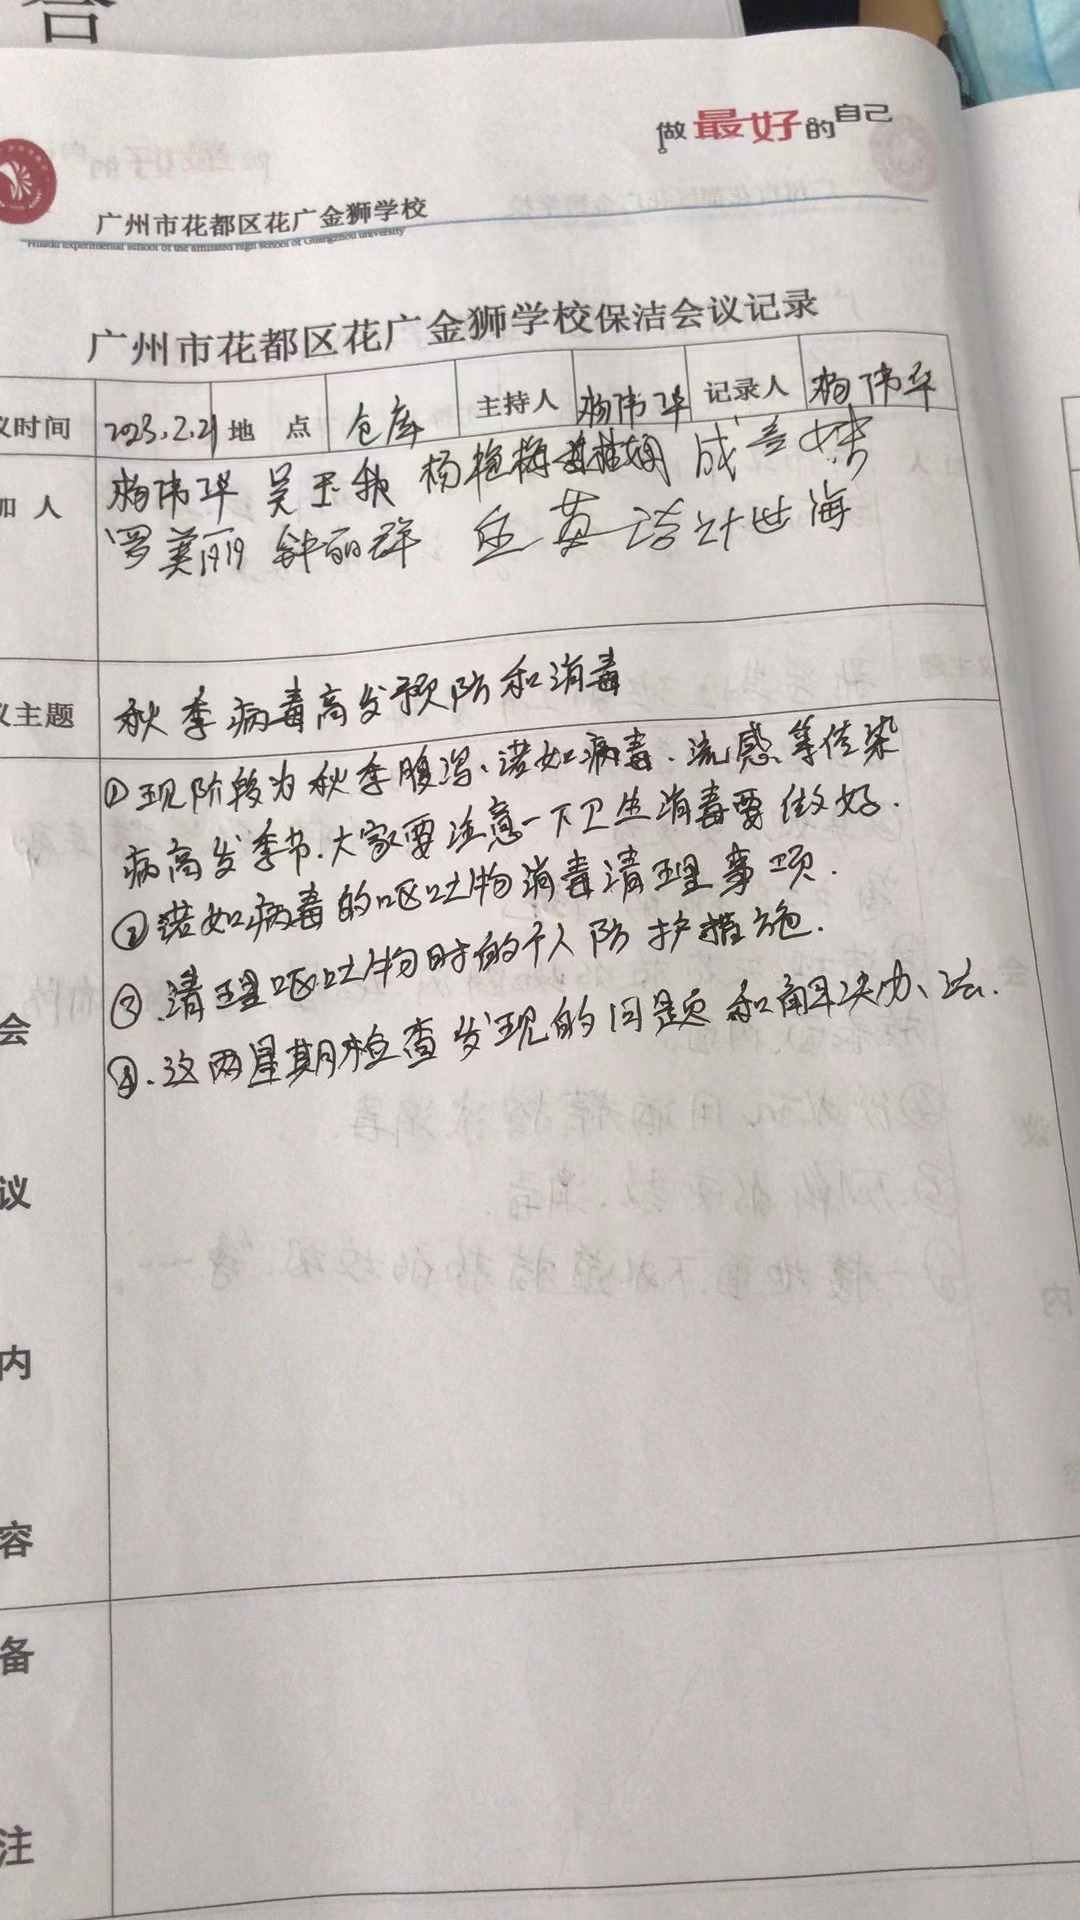 做最好的自己
广州市花都区花广金狮学校
Huadu experimental school of the affiliated high school of Guangzhou university
广州市花都区花广金狮学校保洁会议记录
议时间 2023.2.21 地 点 仓库 主持人 杨伟华 记录人 杨伟华
加 人 杨伟华 吴玉秋 杨艳梅 成
罗美丽 钟丽群 英 世海
议主题 秋季病毒高发预防和消毒
①现阶段为秋季腹泻、诺如病毒、流感等传染
病高发季节.大家要注意一下卫生消毒要做好.
②诺如病毒的呕吐物消毒清理事项.
③.清理呕吐物时的个人防护措施.
④.这两星期检查发现的问题和解决办法.
会
议
内
容
备
注